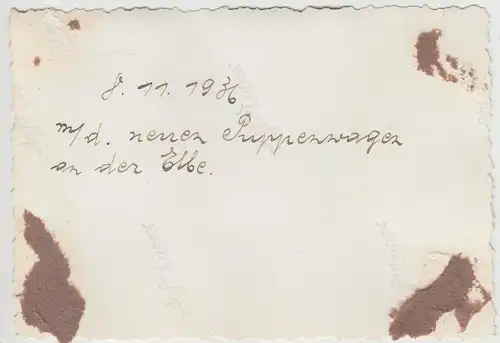 8. 11. 1936
m/d. neuen Puppenwagen
an der Elbe.